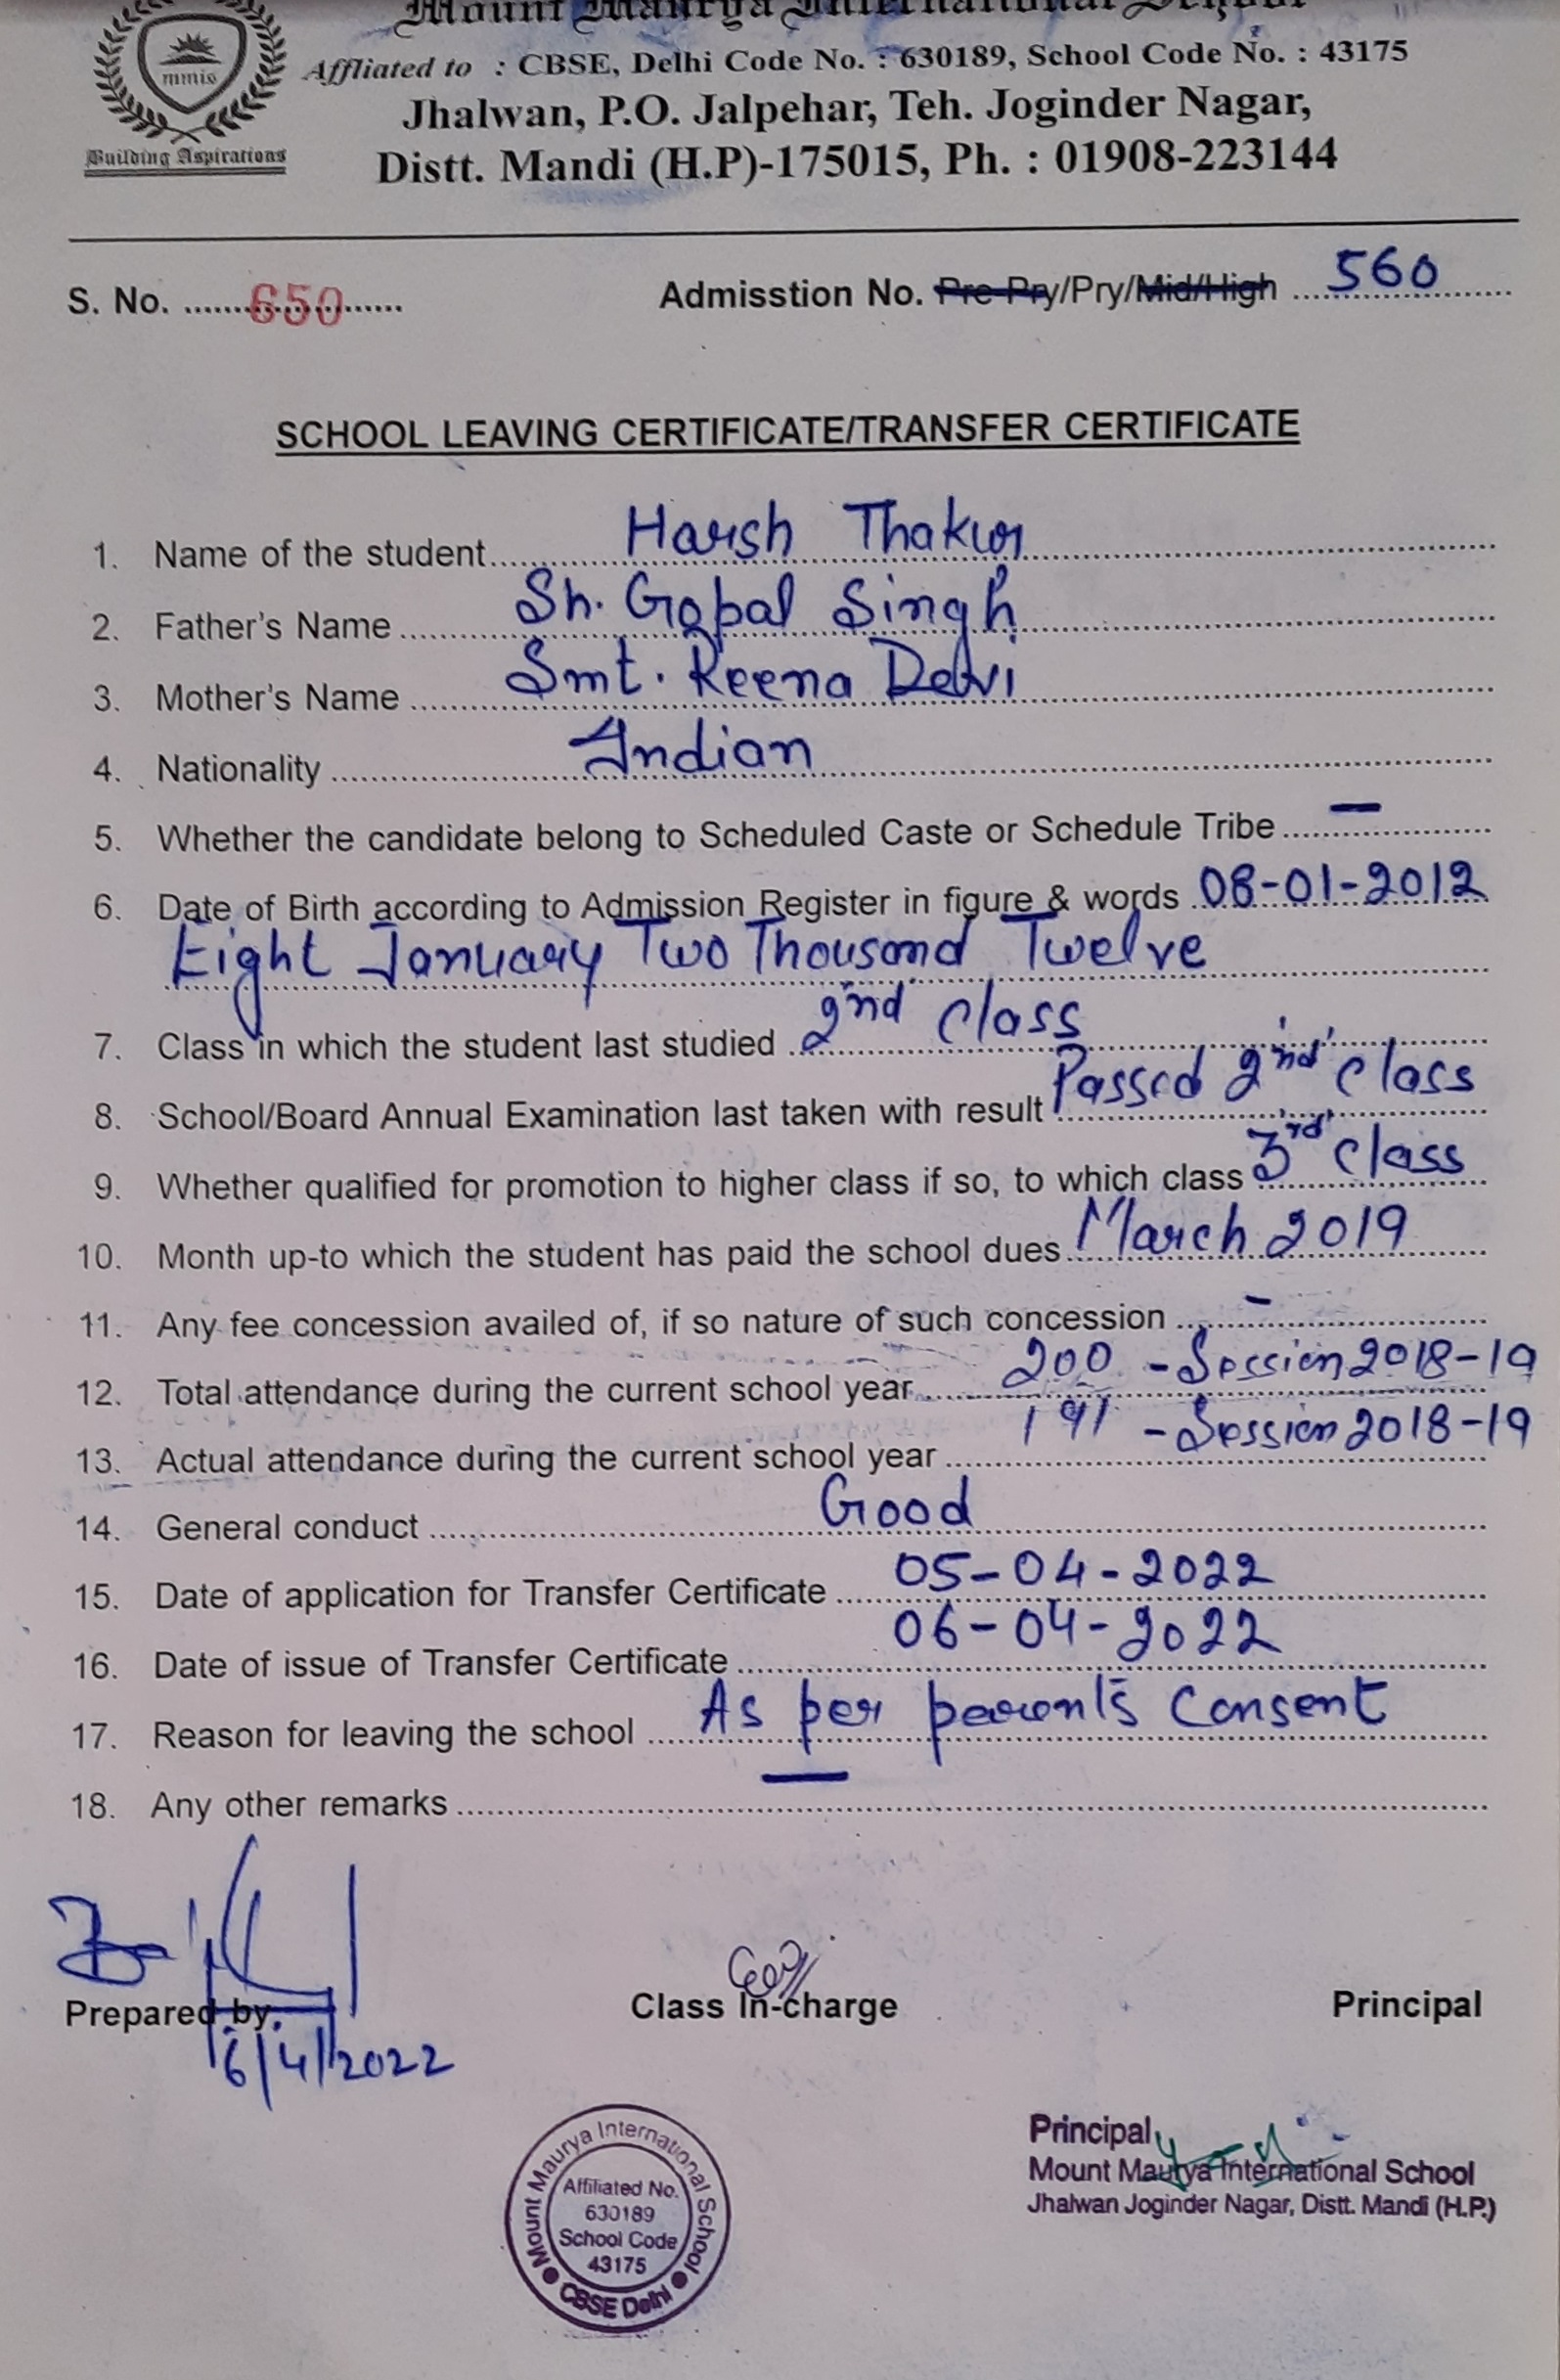 Mount Maurya International School
mmis
Building Aspirations
Affliated to : CBSE, Delhi Code No. : 630189, School Code No. : 43175
Jhalwan, P.O. Jalpehar, Teh. Joginder Nagar,
Distt. Mandi (H.P)-175015, Ph. : 01908-223144
S. No. ........650........ Admisstion No. Pre-Pry/Pry/Mid/High ....560....
SCHOOL LEAVING CERTIFICATE/TRANSFER CERTIFICATE
1. Name of the student.... Harsh Thakur
2. Father's Name .... Sh. Gopal Singh
3. Mother's Name .... Smt. Reena Devi
4. Nationality .... Indian
5. Whether the candidate belong to Scheduled Caste or Schedule Tribe .... —
6. Date of Birth according to Admission Register in figure & words .08-01-2012
Eight January Two Thousand Twelve
7. Class in which the student last studied .. 2nd class
8. School/Board Annual Examination last taken with result Passed 2nd class
9. Whether qualified for promotion to higher class if so, to which class 3rd class
10. Month up-to which the student has paid the school dues March 2019
11. Any fee concession availed of, if so nature of such concession .... –
12. Total attendance during the current school year 200 - Session 2018-19
13. Actual attendance during the current school year 191 - Session 2018-19
14. General conduct .... Good
15. Date of application for Transfer Certificate .... 05-04-2022
16. Date of issue of Transfer Certificate .... 06-04-2022
17. Reason for leaving the school .... As per parent's Consent
18. Any other remarks .... —
Prepared by. Class In-charge Principal
6/4/2022
Mount Maurya International School
Affiliated No.
630189
School Code
43175
CBSE Delhi
Principal
Mount Maurya International School
Jhalwan Joginder Nagar, Distt. Mandi (H.P.)